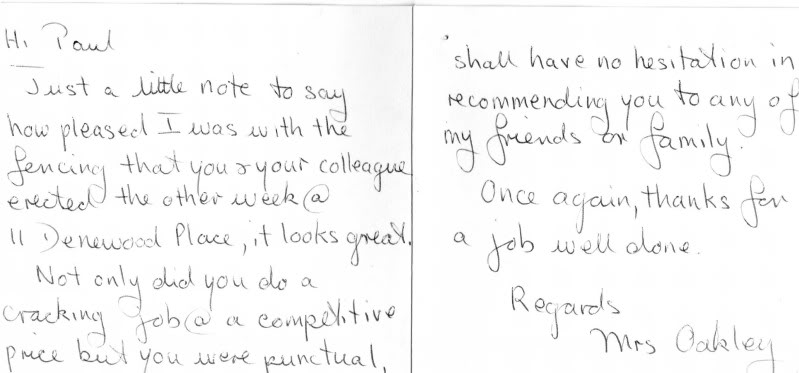 Hi Paul
Just a little note to say
how pleased I was with the
fencing that you & your colleague
erected the other week @
11 Denewood Place, it looks great.
Not only did you do a
cracking job @ a competitive
price but you were punctual,
shall have no hesitation in
recommending you to any of
my friends or family.
Once again, thanks for
a job well done.
Regards
Mrs Oakley